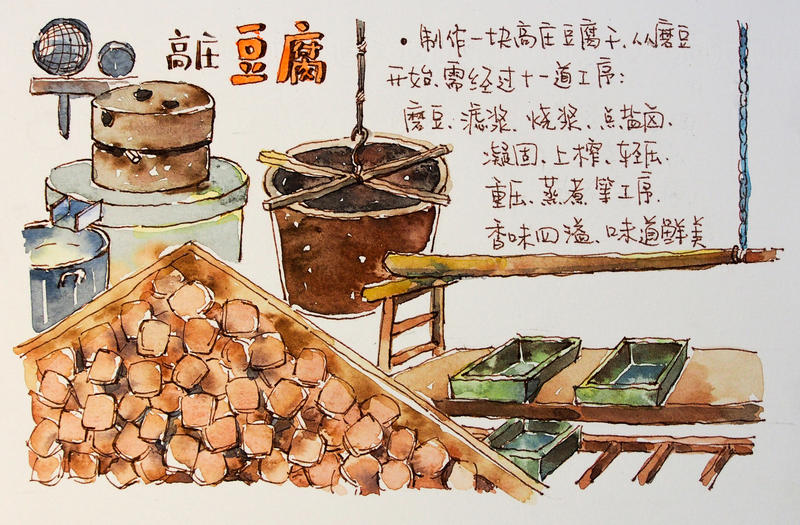 高庄豆腐
• 制作一块高庄豆腐干、从磨豆
开始、需经过十一道工序：
磨豆、滤浆、烧浆、点盐卤、
凝固、上榨、轻压、
重压、蒸煮等工序.
香味四溢、味道鲜美